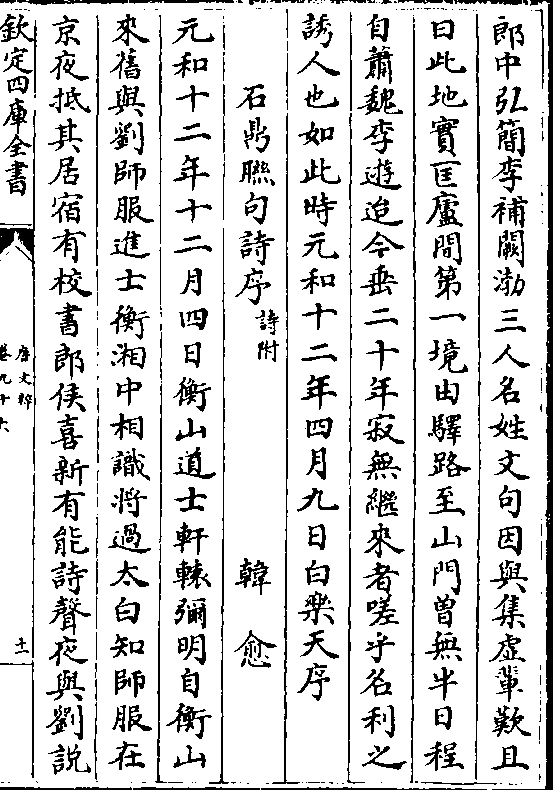 郎中弘簡李補闕渤三人名姓文句因與集虛輩歎且
曰此地實匡廬間第一境由驛路至山門曾無半日程
自蕭魏李遊迨今垂二十年寂無繼來者嗟乎名利之
誘人也如此時元和十二年四月九日白樂天序
石鼎聯句詩序 詩附 韓愈
元和十二年十二月四日衡山道士軒轅彌明自衡山
來舊與劉師服進士衡湘中相識將過太白知師服在
京夜抵其居宿有校書郎侯喜新有能詩聲夜與劉說
欽定四庫全書
唐文粹
卷九十六
十一